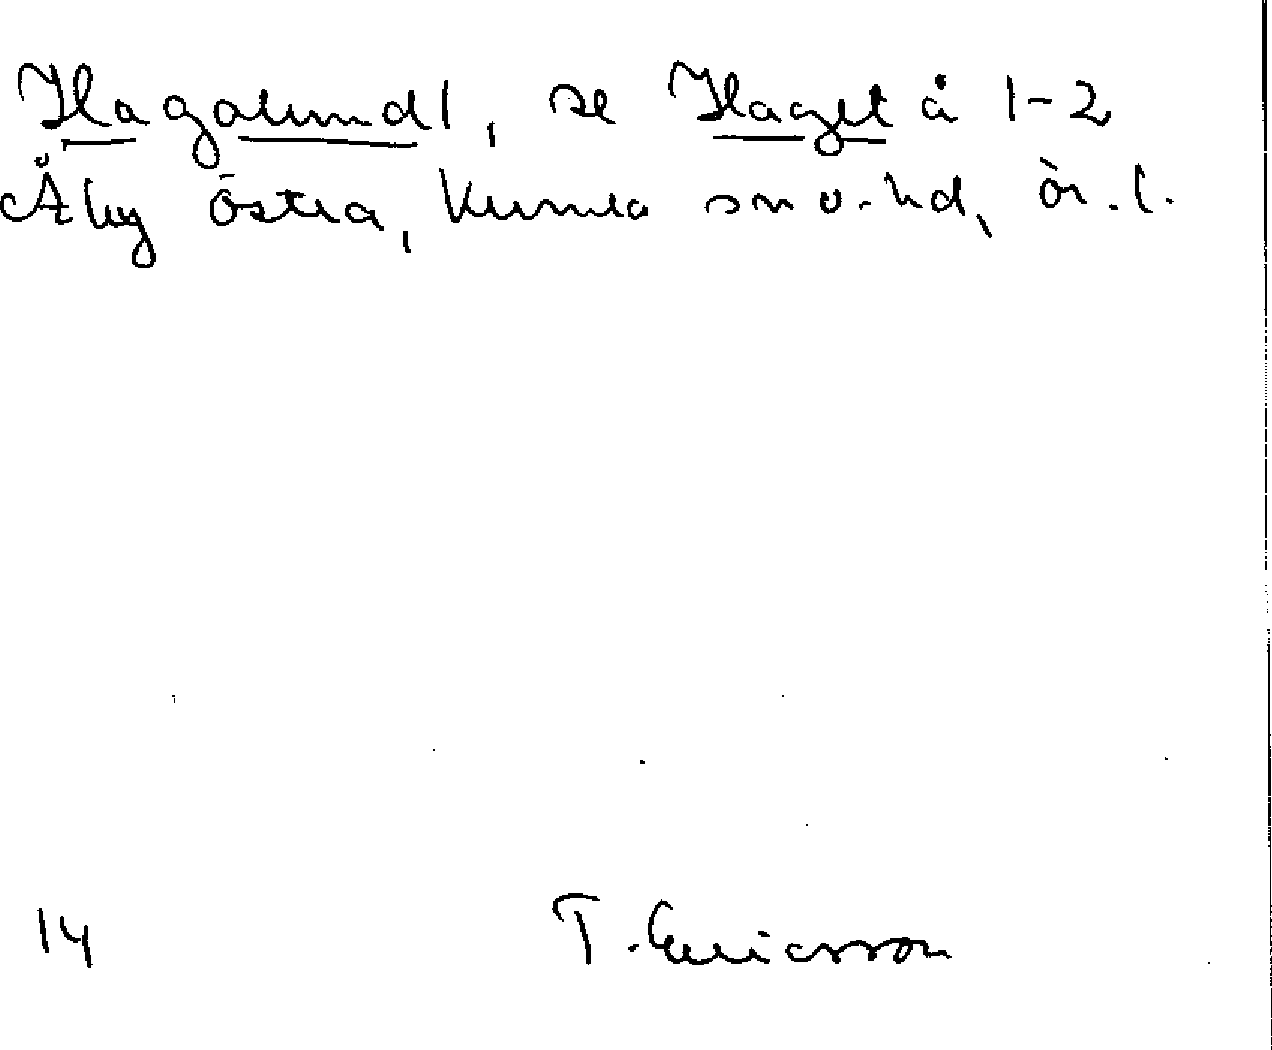 Hagalund 1, se Haget å 1-2
Åby östra, Kumla sn o. hd, Ör. l.
14 T. Ericsson